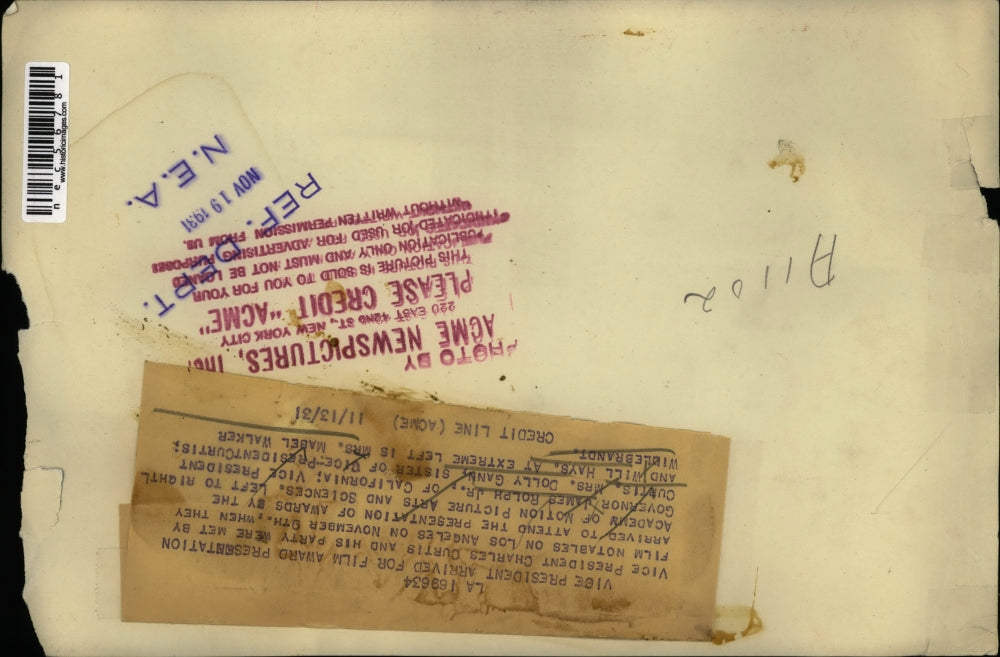 LA 169634
VICE PRESIDENT ARRIVED FOR FILM AWARD PRESENTATION
VICE PRESIDENT CHARLES CURTIS AND HIS PARTY WERE MET BY
FILM NOTABLES ON LOS ANGELES ON NOVEMBER 9TH., WHEN THEY
ARRIVED TO ATTEND THE PRESENTATION OF AWARDS BY THE
ACADEMY OF MOTION PICTURE ARTS AND SCIENCES. LEFT TO RIGHT
GOVERNOR JAMES ROLPH JR., OF CALIFORNIA; VICE PRESIDENT
CURTIS, MRS. DOLLY GANN, SISTER OF VICE-PRESIDENTCURTIS;
AND WILL HAYS. AT EXTREME LEFT IS MRS. MABEL WALKER
WILLEBRANDT.
CREDIT LINE (ACME) 11/13/31
PHOTO BY
ACME NEWSPICTURES, Inc.
220 EAST 42ND ST., NEW YORK CITY
PLEASE CREDIT "ACME"
THIS PICTURE IS SOLD TO YOU FOR YOUR
PUBLICATION ONLY AND MUST NOT BE LOANED
SYNDICATED OR USED FOR ADVERTISING PURPOSES
WITHOUT WRITTEN PERMISSION FROM US.
REF. DEPT.
NOV 19 1931
N.E.A.
A1102
www.historicimages.com
nec56781